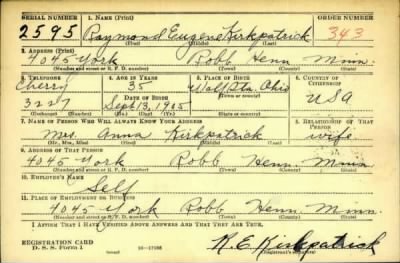 SERIAL NUMBER 1. NAME (Print) ORDER NUMBER
2595 Raymond Eugene Kirkpatrick 343
(First) (Middle) (Last)
2. ADDRESS (Print)
4045 York Robb Henn Minn.
(Number and street or R. F. D. number) (Town) (County) (State)
3. TELEPHONE 4. AGE IN YEARS 5. PLACE OF BIRTH 6. COUNTRY OF CITIZENSHIP
Cherry 35 Ohio
DATE OF BIRTH
Sept 13, 1905 USA
(Exchange) (Number) (Mo.) (Day) (Yr.) (Town or county) (State or country)
7. NAME OF PERSON WHO WILL ALWAYS KNOW YOUR ADDRESS 8. RELATIONSHIP OF THAT PERSON
Mrs. Anna Kirkpatrick wife
(Mr., Mrs., Miss) (First) (Middle) (Last)
9. ADDRESS OF THAT PERSON
4045 York Robb Henn Minn
(Number and street or R. F. D. number) (Town) (County) (State)
10. EMPLOYER'S NAME
Self
11. PLACE OF EMPLOYMENT OR BUSINESS
4045 York Robb Henn. Minn.
(Number and street or R. F. D. number) (Town) (County) (State)
I AFFIRM THAT I HAVE VERIFIED ABOVE ANSWERS AND THAT THEY ARE TRUE.
REGISTRATION CARD
D. S. S. Form 1 R. E. Kirkpatrick
(Registrant's signature)